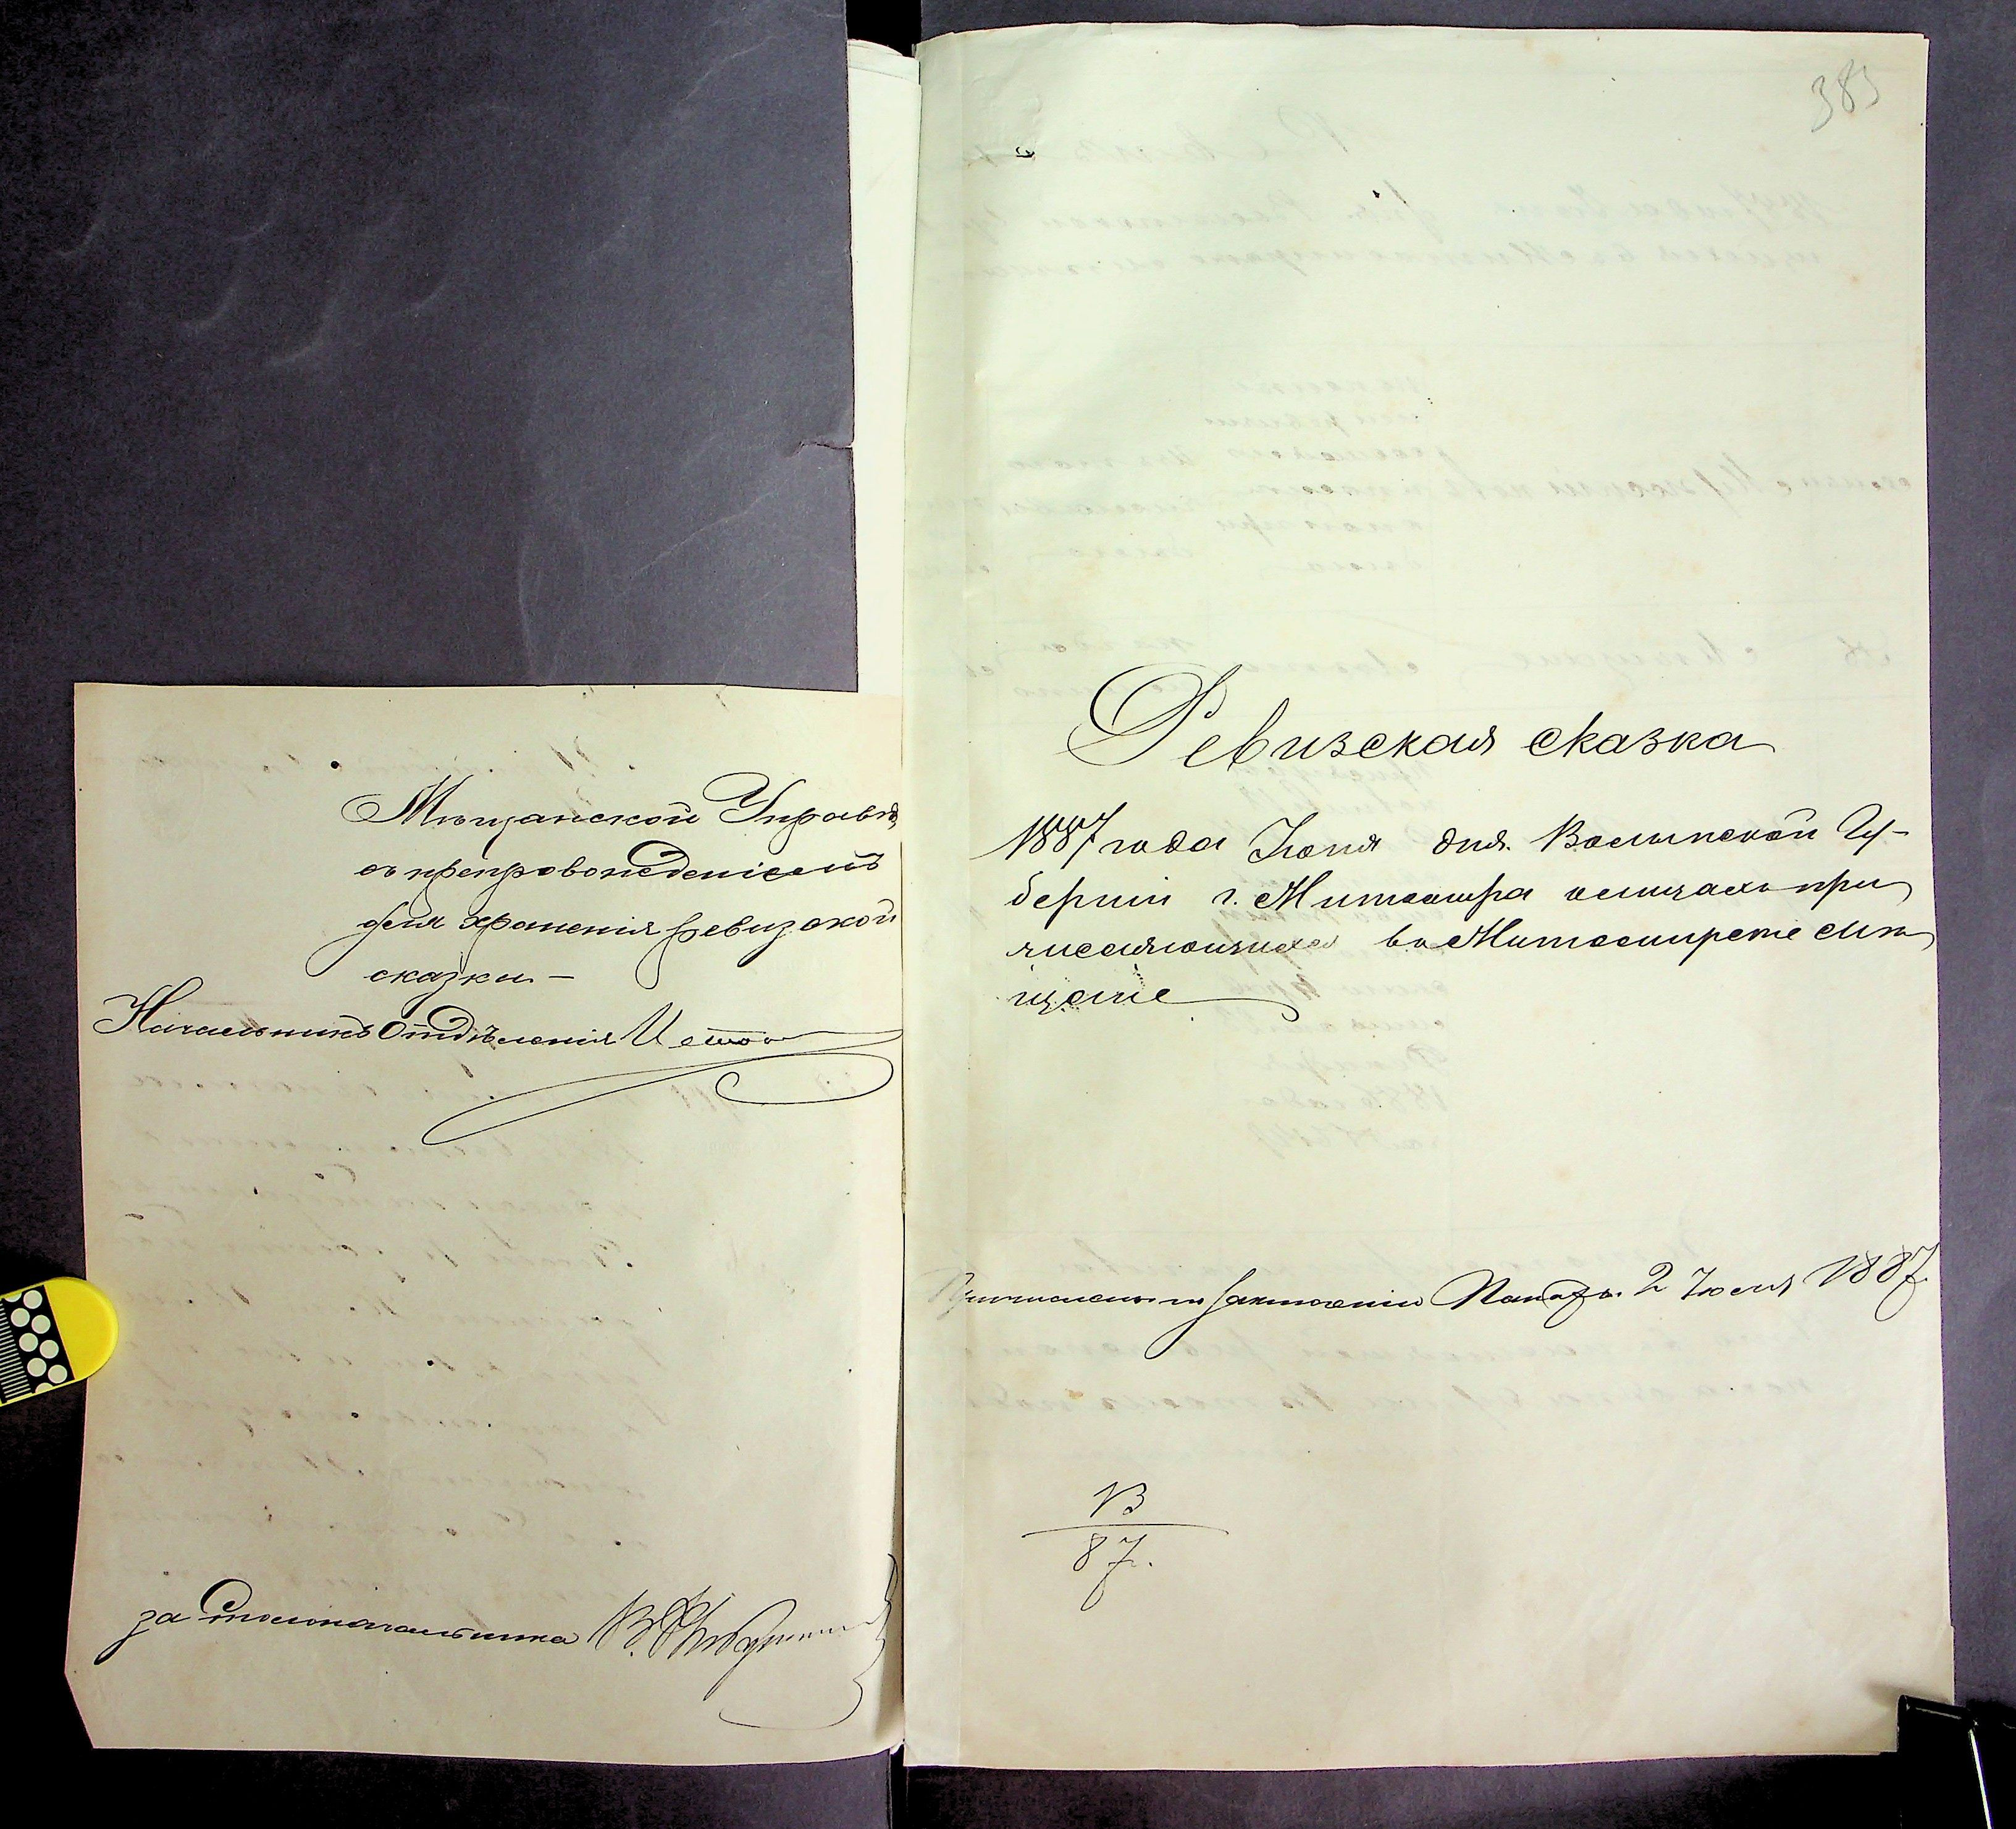 Мѣщанской Управѣ,
съ препровожденіемъ
для храненія ревизской
сказки. —
Начальникъ Отдѣленія
за Столоначальника В.
383
Ревизская сказка
1887 года Іюня дня. Волынской Гу-
берніи г. Житомира о лицахъ при
числяющихся въ Житомирскіе мѣ
щане
Причислены по заключенію Палаты 2 Іюля 1887.
13
87.